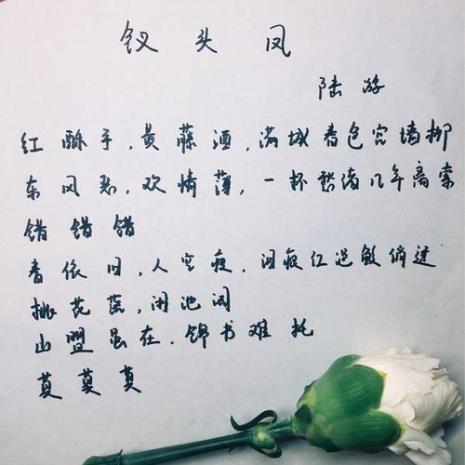 钗头凤
陆游
红酥手,黄藤酒,满城春色宫墙柳
东风恶,欢情薄,一杯愁绪几年离索
错错错
春依旧,人空瘦,泪痕红浥鲛绡透
桃花落,闲池阁
山盟虽在,锦书难托
莫莫莫